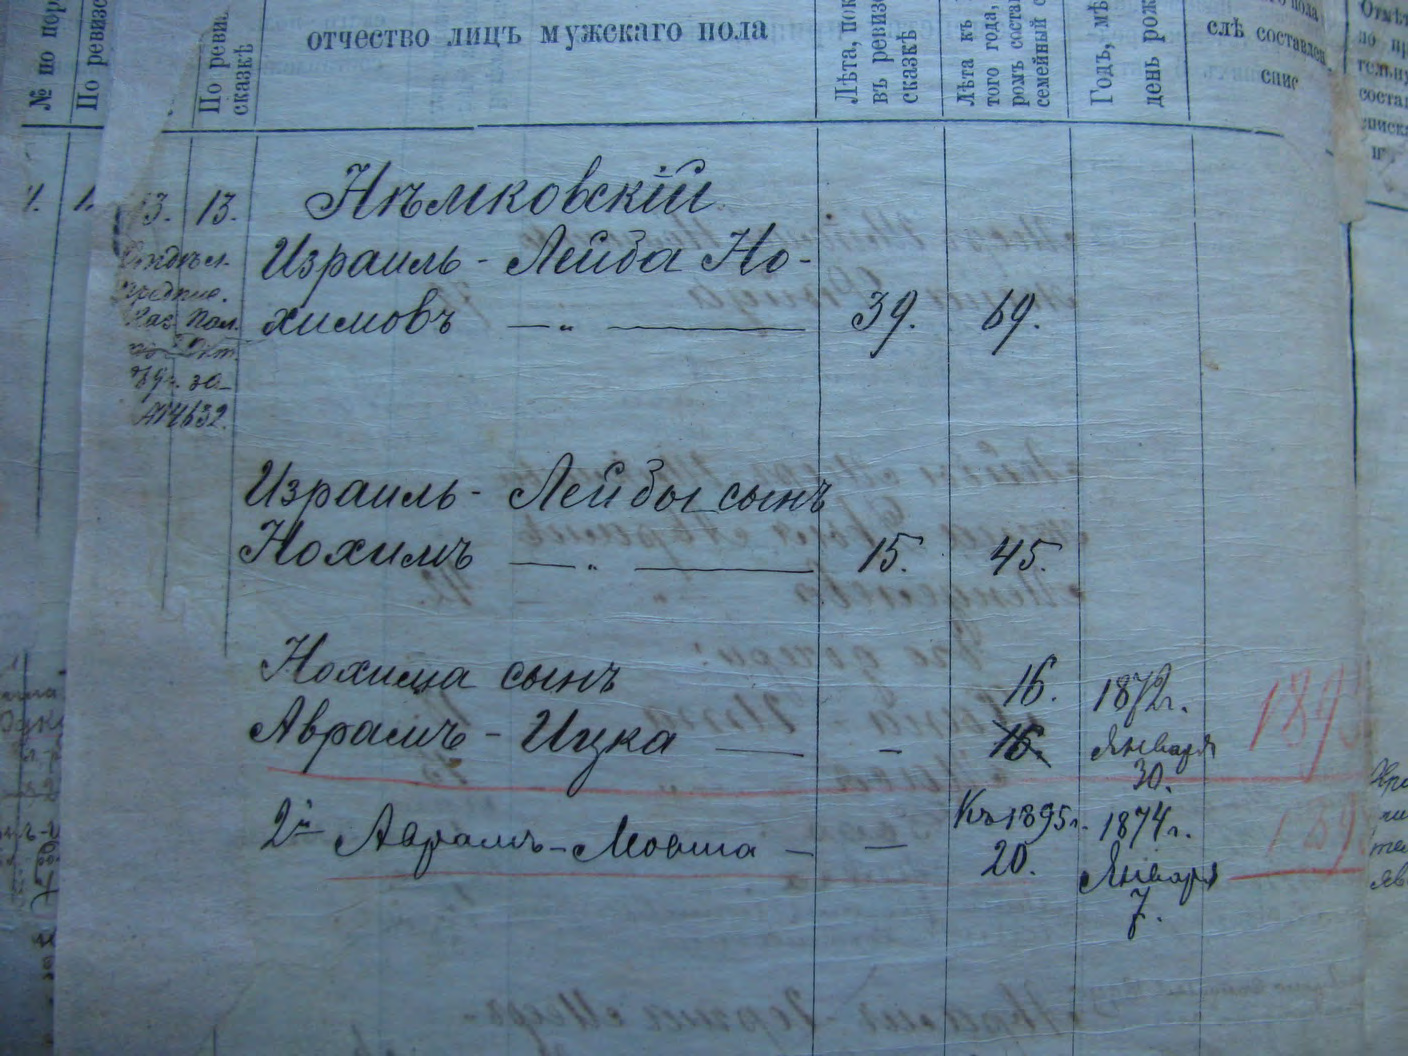 № по пор
По ревизс
По ревиз.
сказкѣ
отчество лицъ мужскаго пола
Лѣта, пок
въ ревизс
сказкѣ
Лѣта къ
того года,
ромъ состав
семейный с
Годъ, мѣ
день рож
слѣ составлен
спис
Отмѣт
по пр
тельну
состав
списка
13. 13.
Нѣмковскій
Израиль - Лейба Но-
химовъ — „ — 39. 69.
№ 4632.
Израиль - Лейбы сынъ
Нохимъ — „ — 15. 45.
Нохима сынъ 16. 1872 г.
Аврамъ - Ицка — — 16. Января
30.
Къ 1895 г. 1874 г.
2й Аврамъ - Мовша — — 20. Января
7.